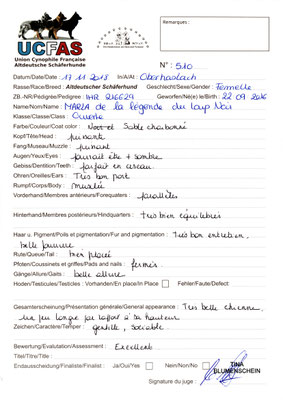 UCFAS
Union Cynophile Française
Altdeutsche Schäferhunde
Remarques :
N° : 510
Datum/Date/Date : 17 11 2018 In/A/At : Oberhaslach
Rasse/Race/Breed : Altdeutscher Schäferhund Geschlecht/Sexe/Gender : Femelle
ZB.-NR/Pédigrée/Pedigree : IHR 216629 Geworfen/Né(e) le/Birth : 22 09 2016
Name/Nom/Name : MARLA de la légende du loup Noir
Klasse/Classe/Class : Ouverte
Farbe/Couleur/Coat color : Noir et Sable charbonné
Kopf/Tête/Head : puissante
Fang/Museau/Muzzle : puissant
Augen/Yeux/Eyes : pourrait être + sombre
Gebiss/Dentition/Teeth : parfait en ciseau
Ohren/Oreilles/Ears : Très bon port
Rumpf/Corps/Body : musclé
Vorderhand/Membres antérieurs/Forequaters : parallèles
Hinterhand/Membres postérieurs/Hindquarters : très bien équilibrés
Haar u. Pigment/Poils et pigmentation/Fur and pigmentation : Très bon entretien,
belle fourrure
Rute/Queue/Tail : bien placé
Pfoten/Coussinets et griffes/Pads and nails : fermés
Gänge/Allure/Gaits : belle allure
Hoden/Testicules/Testicles : Vorhanden/En place/In Place Fehler/Faute/Defect:
Gesamterscheinung/Présentation générale/General appearance : Très belle chienne
un peu longue par rapport à sa hauteur
Zeichen/Caractère/Temper : gentille, sociable
Bewertung/Evalutation/Assessment : Excellent
Titel/Titre/Title :
Endausscheidung/Finaliste/Finalist : Ja/Oui/Yes Nein/Non/No
TINA
BLUMENSCHEIN
Signature du juge :